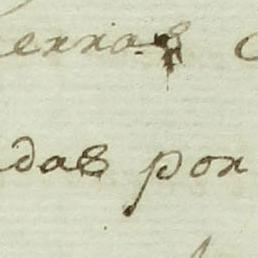 erras
das por